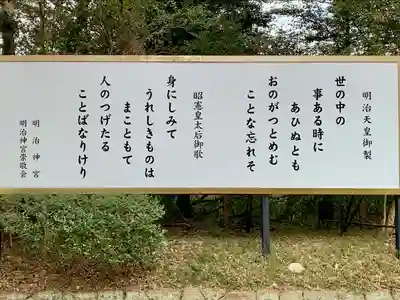 明治天皇御製
世の中の
事ある時に
あひぬとも
おのがつとめむ
ことな忘れそ
昭憲皇太后御歌
身にしみて
うれしきものは
まこともて
人のつげたる
ことばなりけり
明治神宮
明治神宮崇敬会